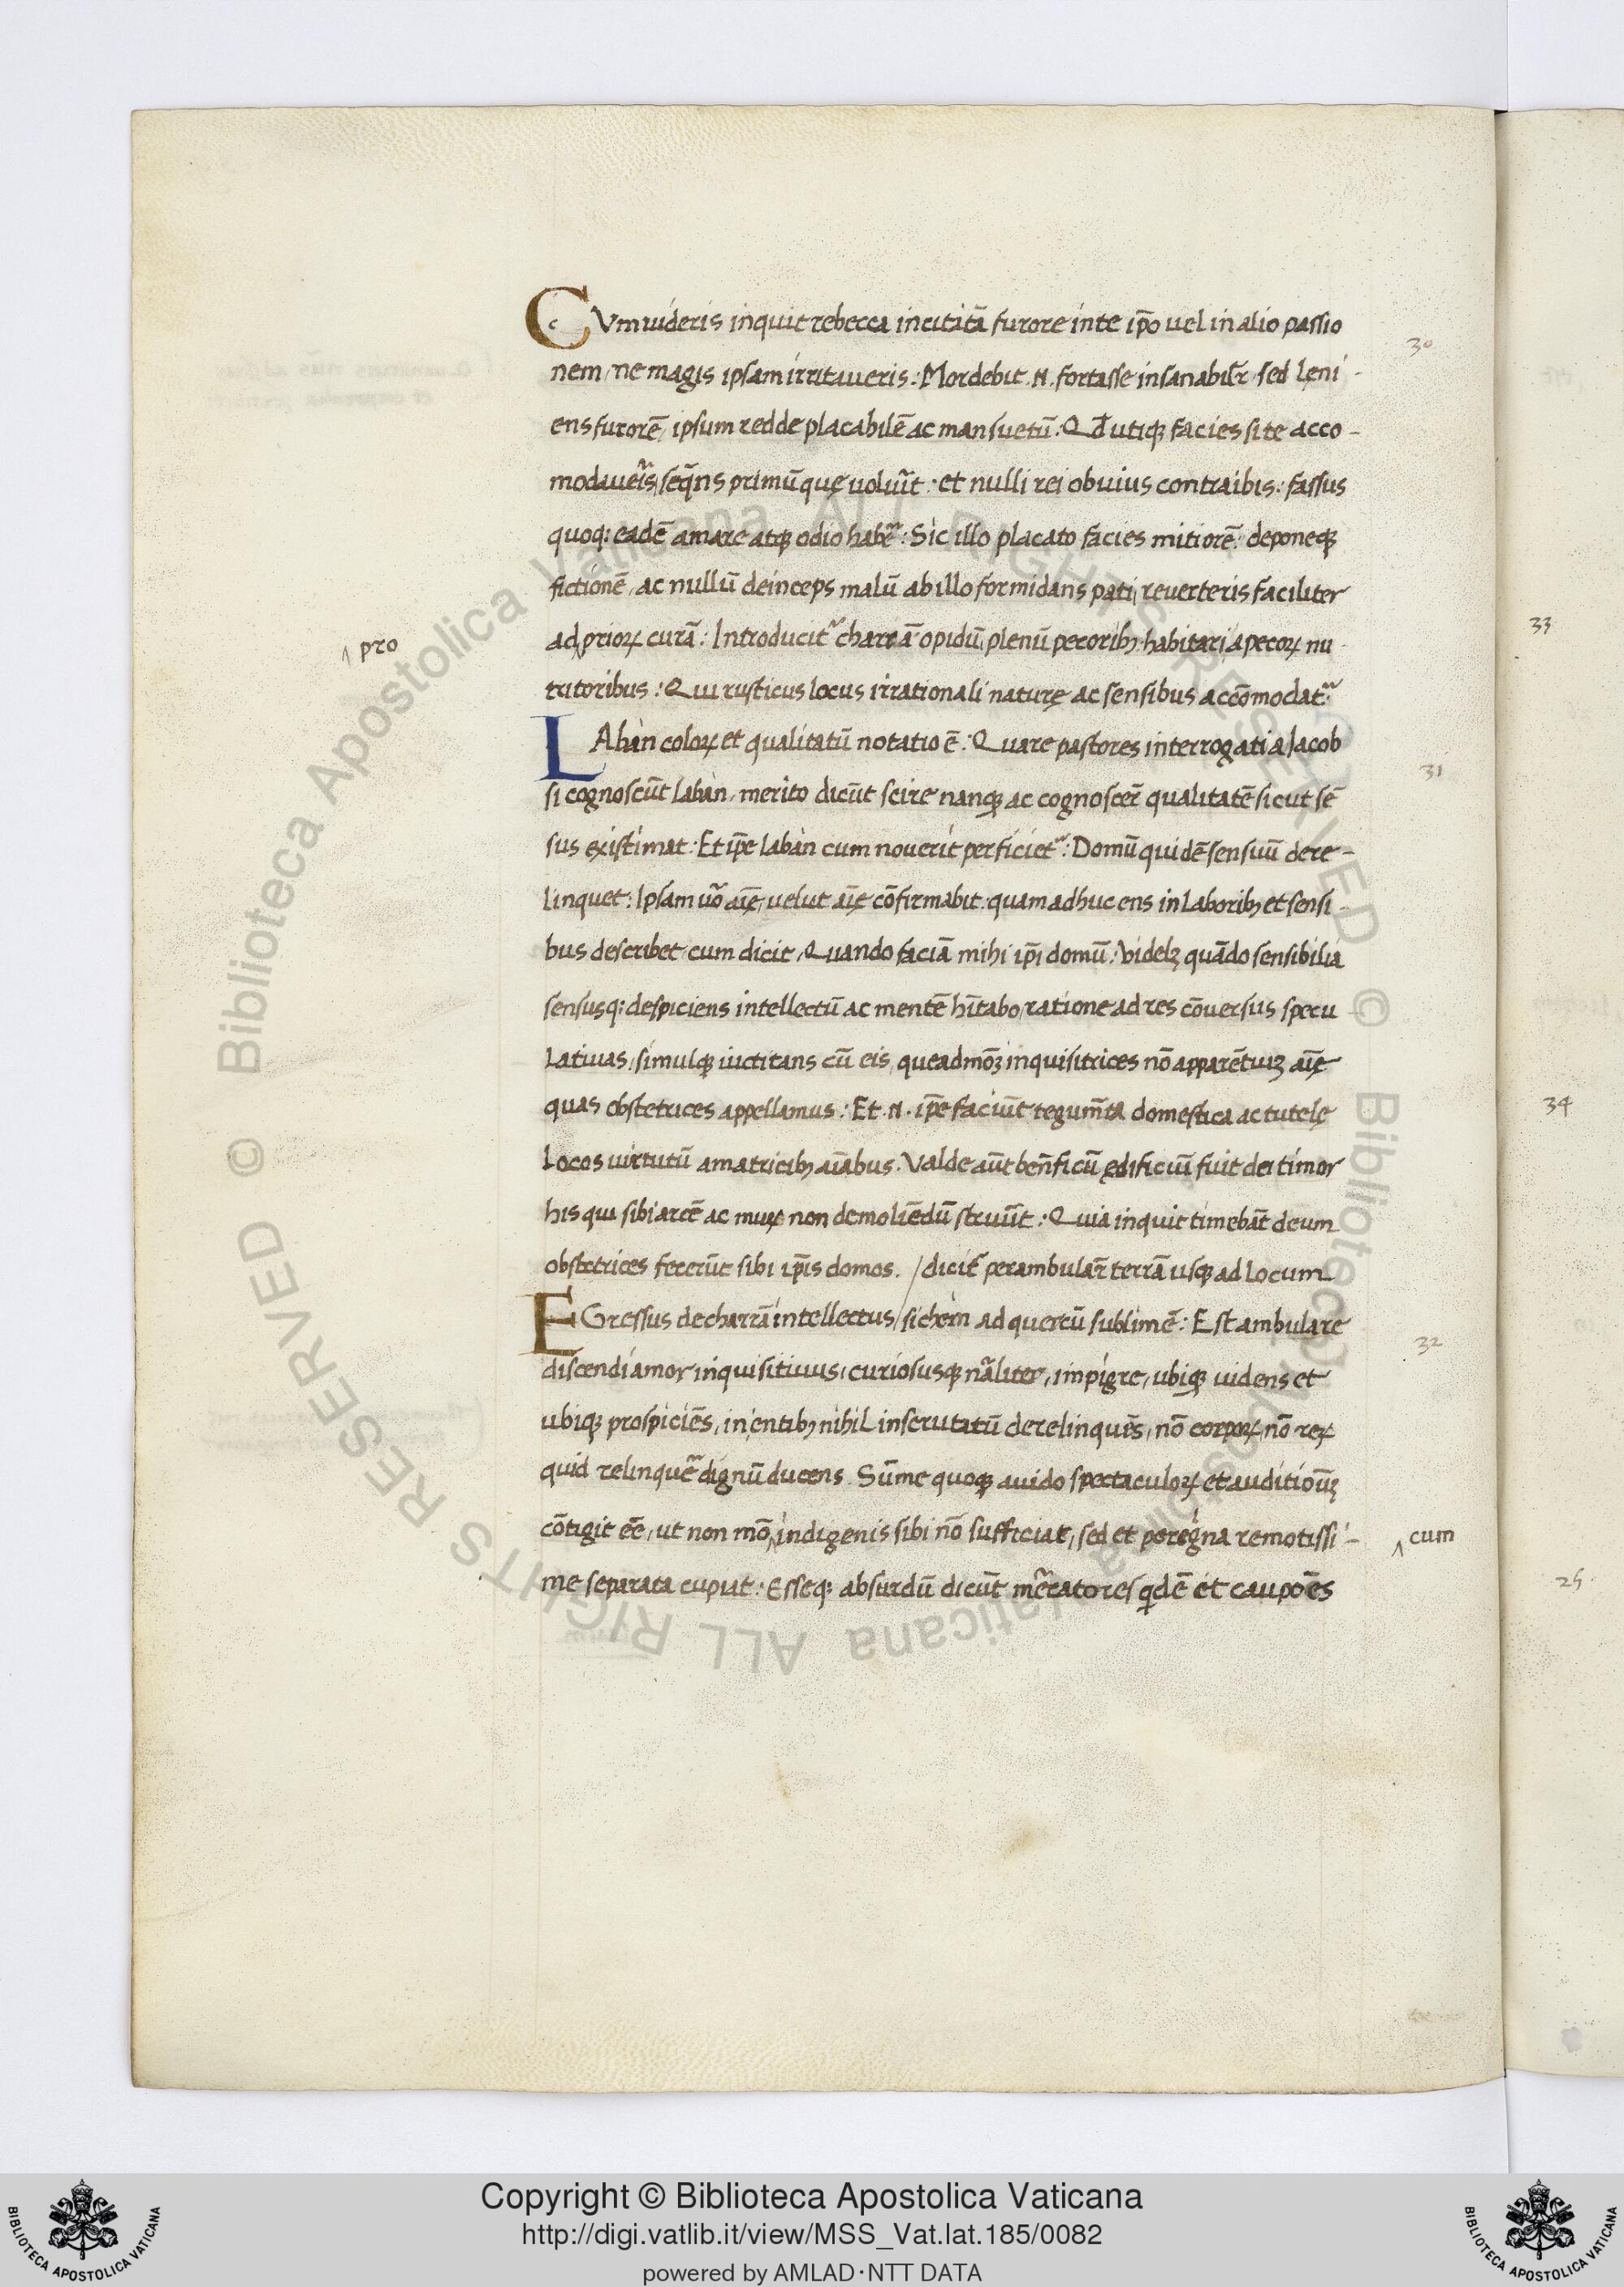 CVm uideris inquit rebecca incitatā furore in te ip̄o uel in alio passio
nem, ne magis ipsam irritaueris: Mordebit .N. fortasse insanabilr̄, sed leni-
ens furorē, ipsum redde placabilē ac mansuetū. Qd̄ utiqꝫ facies si te acco-
modaueris, seq̄ns primū quę uolūit: et nulli rei obuius contraibis: fassus
quoqꝫ: eadē amare atqꝫ odio habēr: Sic illo placato facies mitiorē: deponeqꝫ
fictionē, ac nullū deinceps malū ab illo formidans pati, reuerteris faciliter
ad ^ prioꝝ curā: Introducitr charrā opidū, plenū pecoribꝫ, habitari, a pecoꝝ nu-
^ pro
tritoribus: Qui rusticus locus irrationali naturę ac sensibus accōmodatr.
LAban coloꝝ et qualitatū notatio ē: Quare pastores interrogati a Jacob
si cognoscūt laban, merito dicūt scire nanqꝫ ac cognoscer̄ qualitatē sicut sē
sus existimat: Et ip̄e laban cum nouerit perficietr: Domū quidē sensuū dere-
linquet: Ipsam uō aīę, uelut aīę cōfirmabit. quam adhuc ens in laboribꝫ et sensi-
bus describet, cum dicit, Quando faciā mihi ip̄i domū: Videlꝫ quādo sensibilia
sensusqꝫ: despiciens intellectū ac mentē hītabo, ratione ad res cōuersus specu-
latiuas, simulqꝫ uictitans cū eis, queadmōꝫ inquisitrices nō apparētuꝫ aīę
quas obstetrices appellamus: Et .N. ip̄e faciūt tegum̄ta domestica ac tutelę
locos uirtutū amatricibꝫ aīabus. Valde aūt ben̄ficū ędificiū fuit dei timor
his qui sibi arcē ac muꝝ non demoliēdū struūt: Quia inquit timebāt deum
obstetrices fecerūt sibi ip̄is domos. / dicit perambular̄ terrā usqꝫ ad locum
EGressus de charrā intellectus / sichem ad quercū sublimē: Est ambulare
discendi amor inquisitiuus, curiosusqꝫ nāliter, impigre, ubiqꝫ uidens et
ubiqꝫ prospiciēs, in entibꝫ nihil inscrutatū derelinquēs, nō corpoꝝ, nō reꝝ
quid relinquēr dignū ducens. Sūme quoqꝫ auido spectaculoꝝ et auditiōuꝫ
cōtigit eē̄, ut non mō ^ indigenis sibi nō sufficiat, sed et peregna remotissi-
^ cum
me separata cupiat: Esseqꝫ absurdū dicūt mercatores qdē et caupōes
30
31
32
33
34
25
Copyright © Biblioteca Apostolica Vaticana
http://digi.vatlib.it/view/MSS_Vat.lat.185/0082
powered by AMLAD·NTT DATA
BIBLIOTECA APOSTOLICA VATICANA
BIBLIOTECA APOSTOLICA VATICANA
© Biblioteca Apostolica Vaticana ALL RIGHTS RESERVED
© Biblioteca Apostolica Vaticana ALL RIGHTS RESERVED